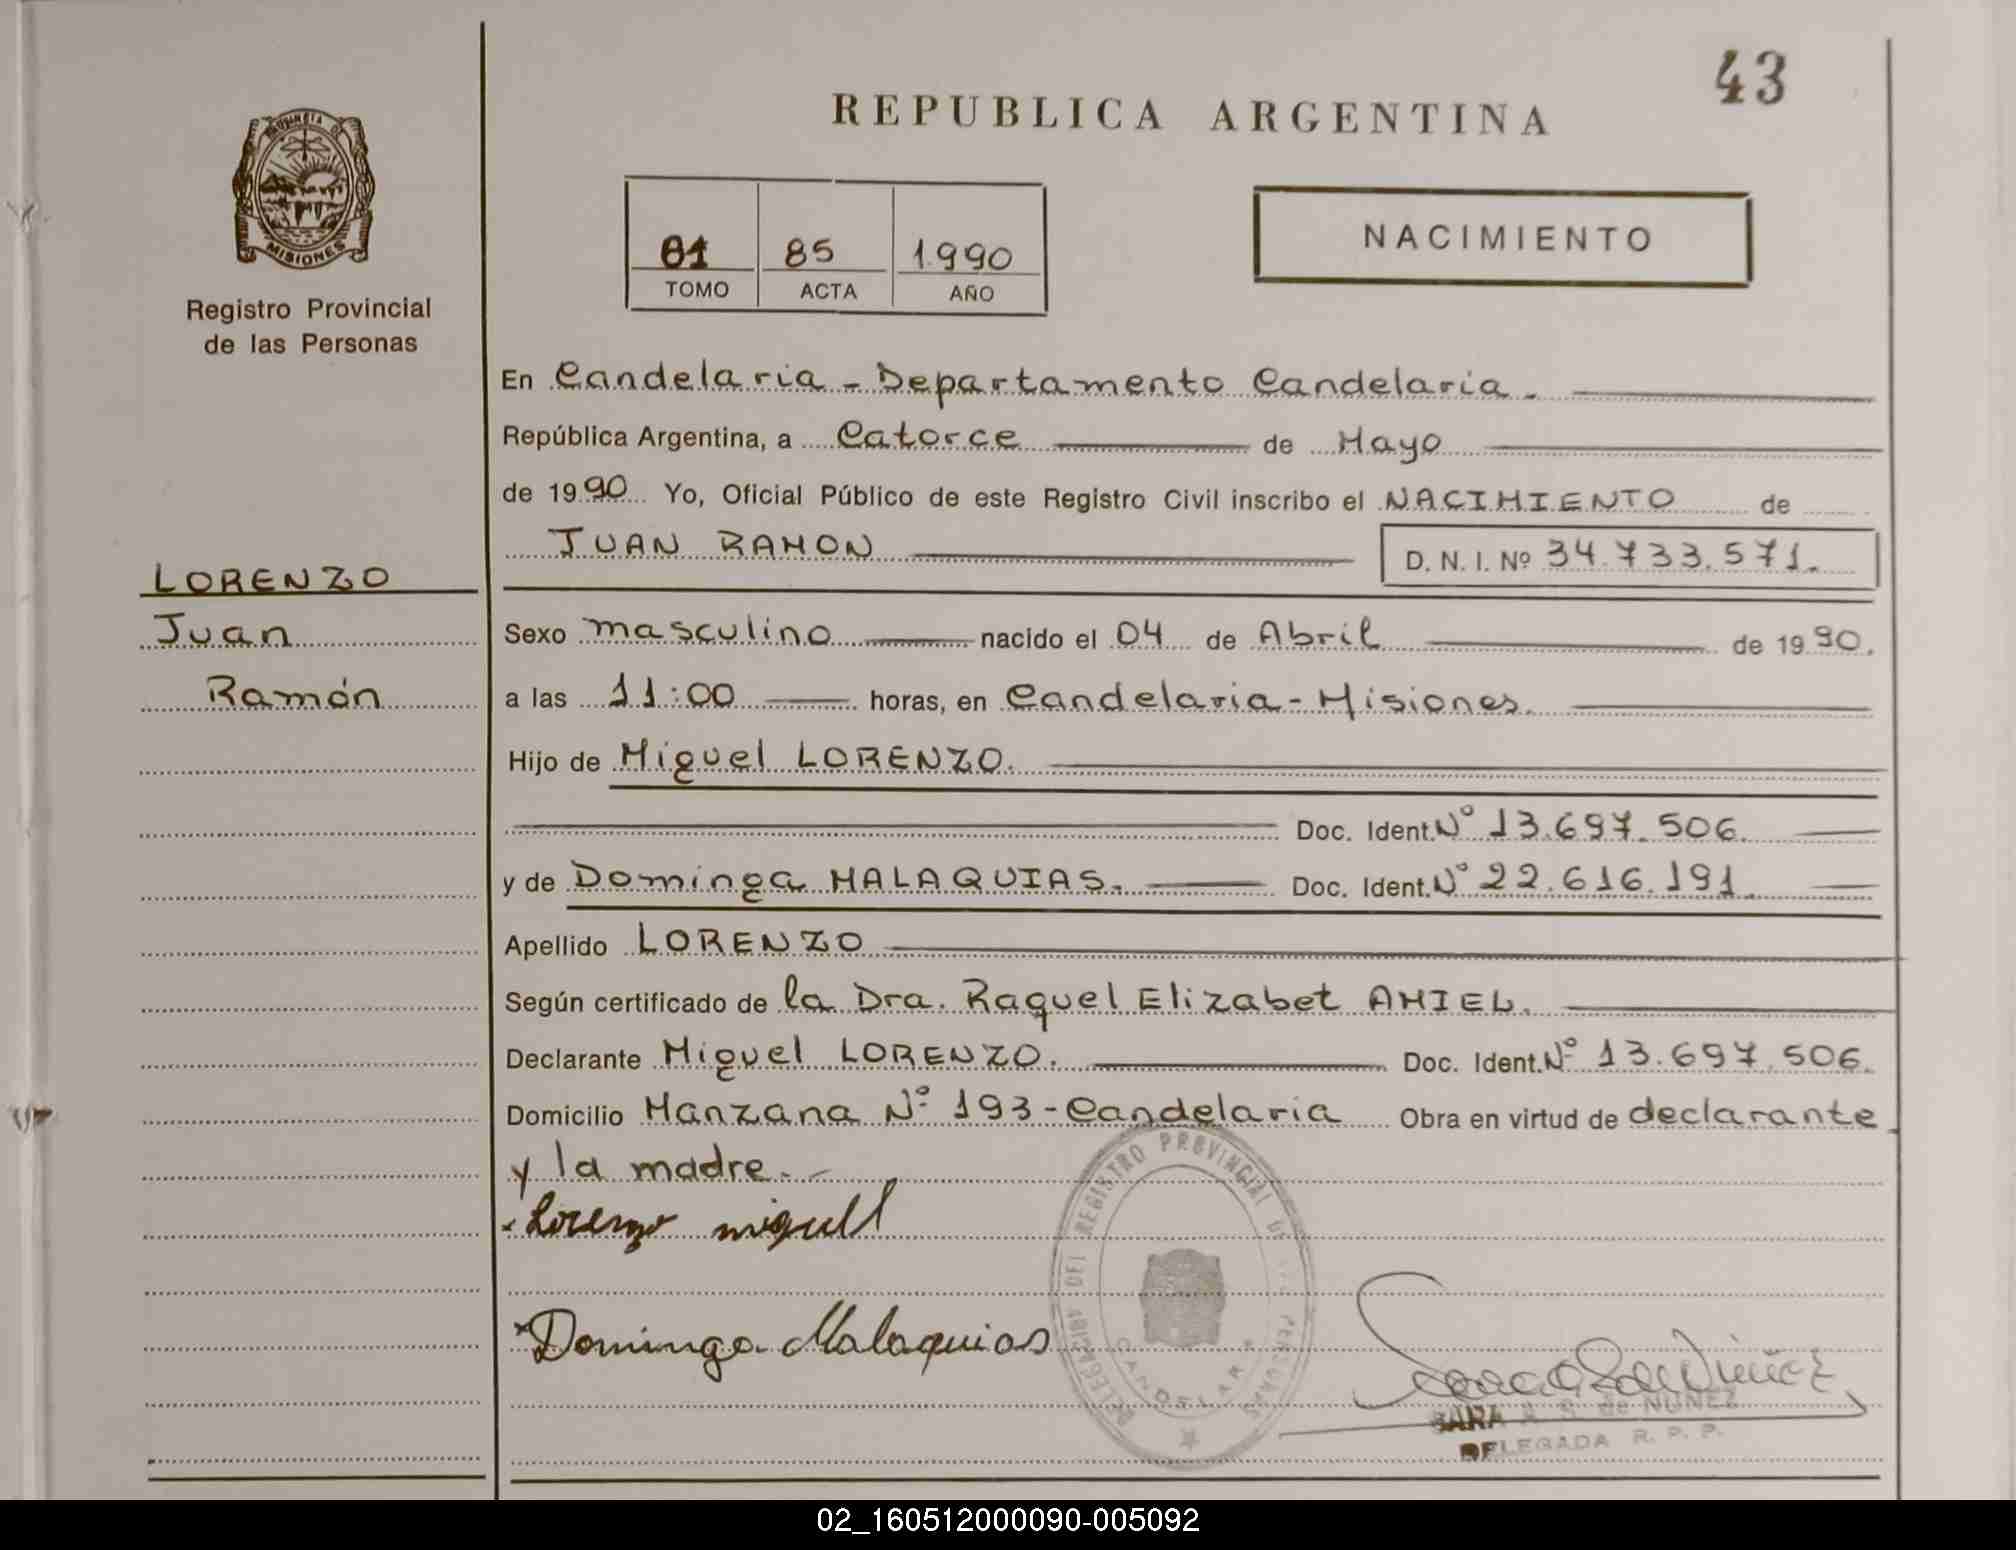 43
REPUBLICA ARGENTINA
PROVINCIA DE
MISIONES
Registro Provincial
de las Personas
01 85 1.990
TOMO ACTA AÑO
NACIMIENTO
En Candelaria - Departamento Candelaria.
República Argentina, a Catorce de Mayo
de 1990 Yo, Oficial Público de este Registro Civil inscribo el NACIMIENTO de
JUAN RAMON D. N. I. Nº 34.733.571.
LORENZO
Juan
Ramón
Sexo masculino nacido el 04 de Abril de 1990.
a las 11:00 horas, en Candelaria - Misiones.
Hijo de Miguel LORENZO.
Doc. Ident. Nº 13.697.506.
y de Dominga MALAQUIAS. Doc. Ident. Nº 22.616.191.
Apellido LORENZO
Según certificado de la Dra. Raquel Elizabet AMIEL.
Declarante Miguel LORENZO. Doc. Ident. Nº 13.697.506.
Domicilio Manzana Nº 193 - Candelaria Obra en virtud de declarante
y la madre.-
x Lorenzo miguell
x Dominga Malaquias
DELEGACION DEL REGISTRO PROVINCIAL DE LAS PERSONAS
CANDELARIA
SARA A. R. de NUÑEZ
DELEGADA R. P. P.
02_160512000090-005092